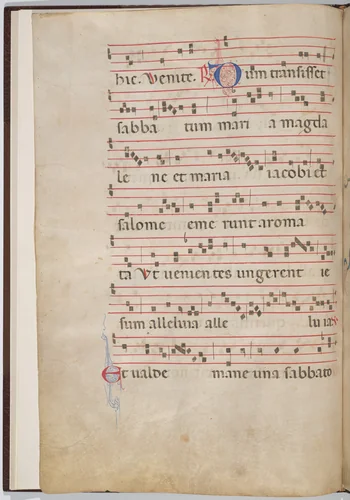 hic. Venite. R Dum transisset
sabba tum mari a magda
le ne et maria iacobi et
salome eme runt aroma
ta Vt uenien tes ungerent ie
sum alleluia alle lu ia
Et ualde mane una sabbato